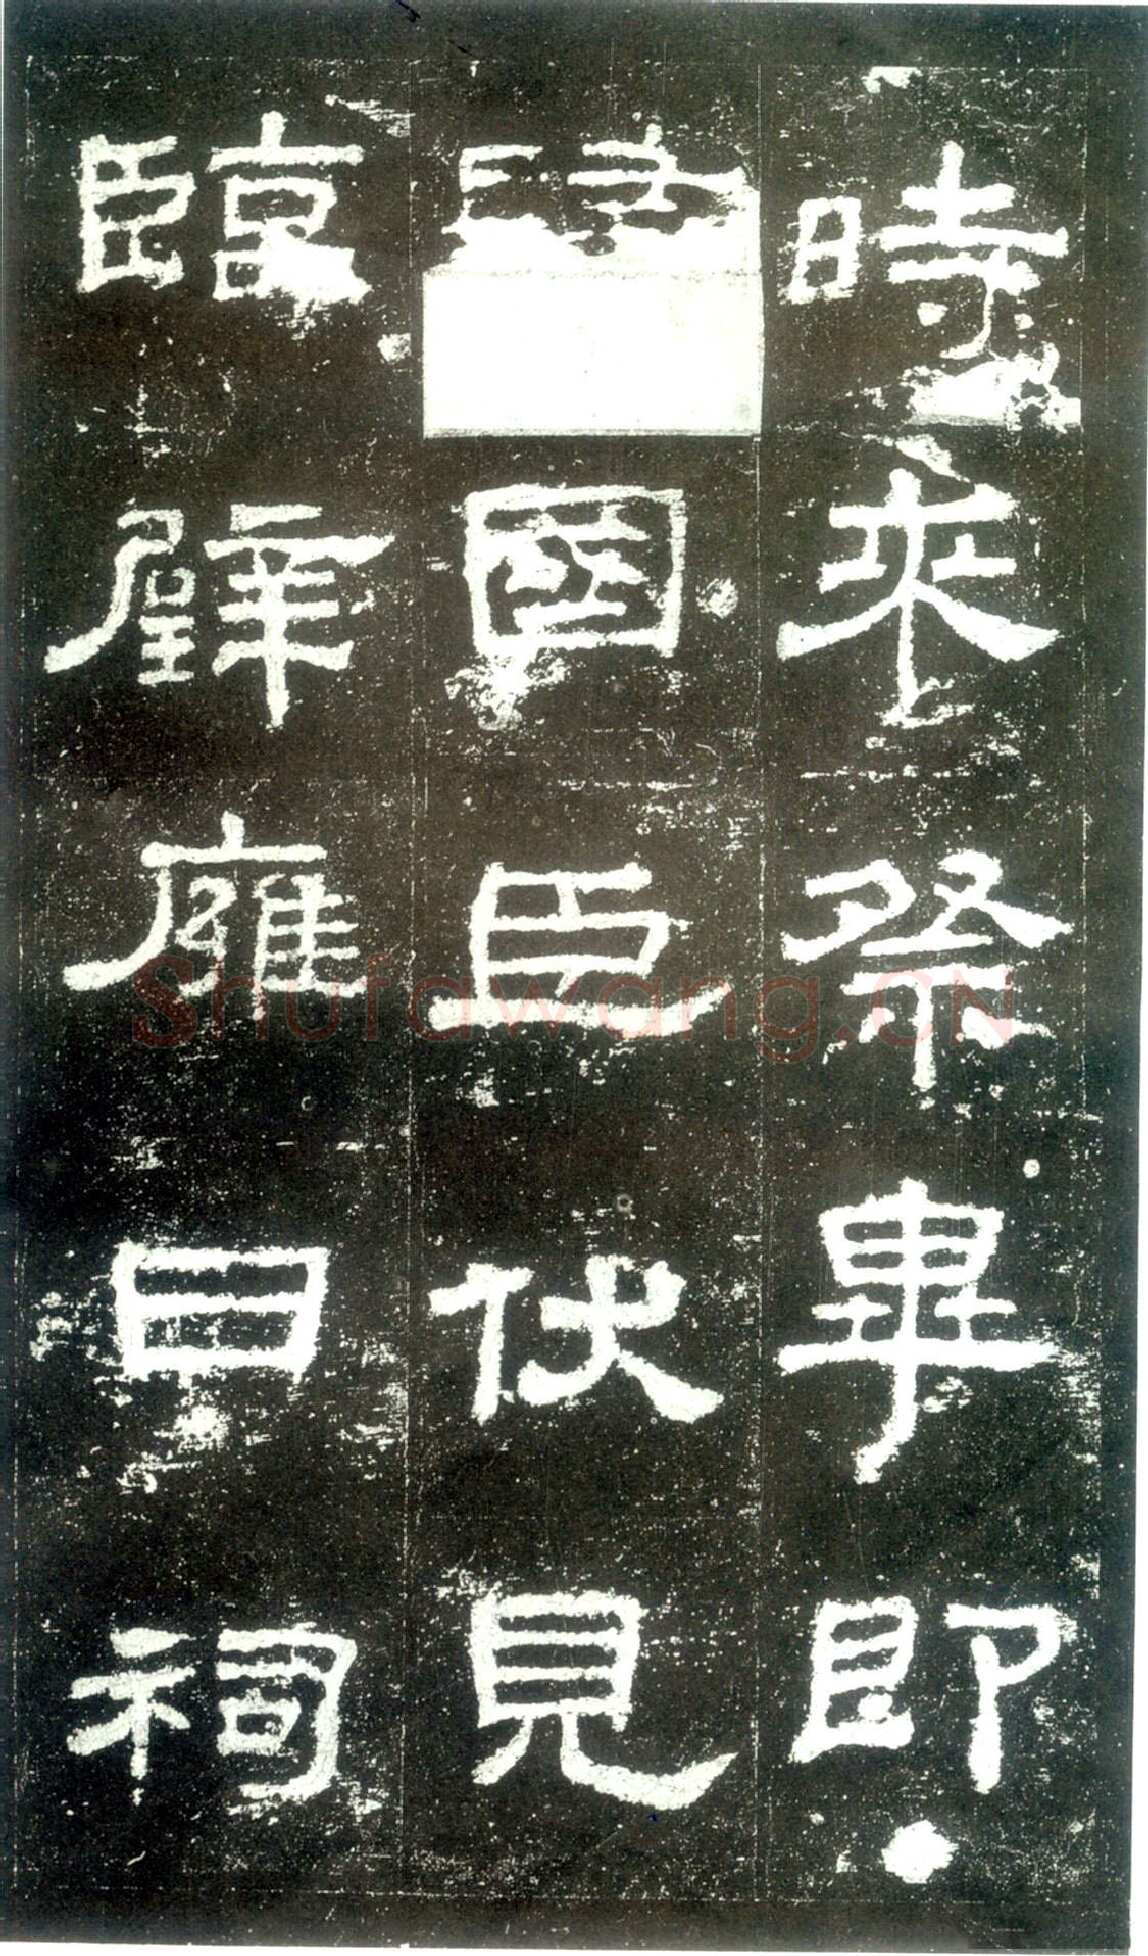 時來祭畢即
國臣伏見
臨璧雍日祠
Shufawang.CN